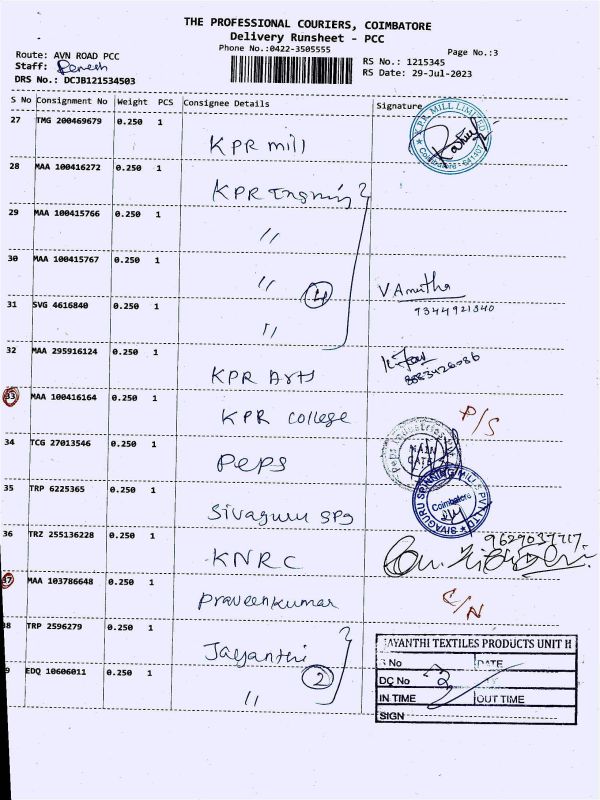 THE PROFESSIONAL COURIERS, COIMBATORE
Delivery Runsheet - PCC
Phone No.:0422-3505555
Page No.:3
Route: AVN ROAD PCC
Staff:
DRS No.: DCJB121534503
RS No.: 1215345
RS Date: 29-Jul-2023
S No Consignment No Weight PCS Consignee Details Signature
27 TMG 200469679 0.250 1
KPR mill
K.P.R. MILL LIMITED
28 MAA 100416272 0.250 1
KPR
29 MAA 100415766 0.250 1
"
30 MAA 100415767 0.250 1
" 4
V Amutha
9344921340
31 SVG 4616840 0.250 1
"
32 MAA 295916124 0.250 1
KPR Arts
8883426086
33 MAA 100416164 0.250 1
KPR college
P/S
34 TCG 27013546 0.250 1
Peps
MAIN GATE
35 TRP 6225365 0.250 1
Sivaguru spg
SIVAGURU SPINNING MILLS PVT LTD
Coimbatore
36 TRZ 255136228 0.250 1
KNRC
37 MAA 103786648 0.250 1
Praveenkumar
C/N
38 TRP 2596279 0.250 1
Jayanthi
2
EDQ 10606011 0.250 1
"
JAYANTHI TEXTILES PRODUCTS UNIT II
S No DATE
DC No 2
IN TIME OUT TIME
SIGN